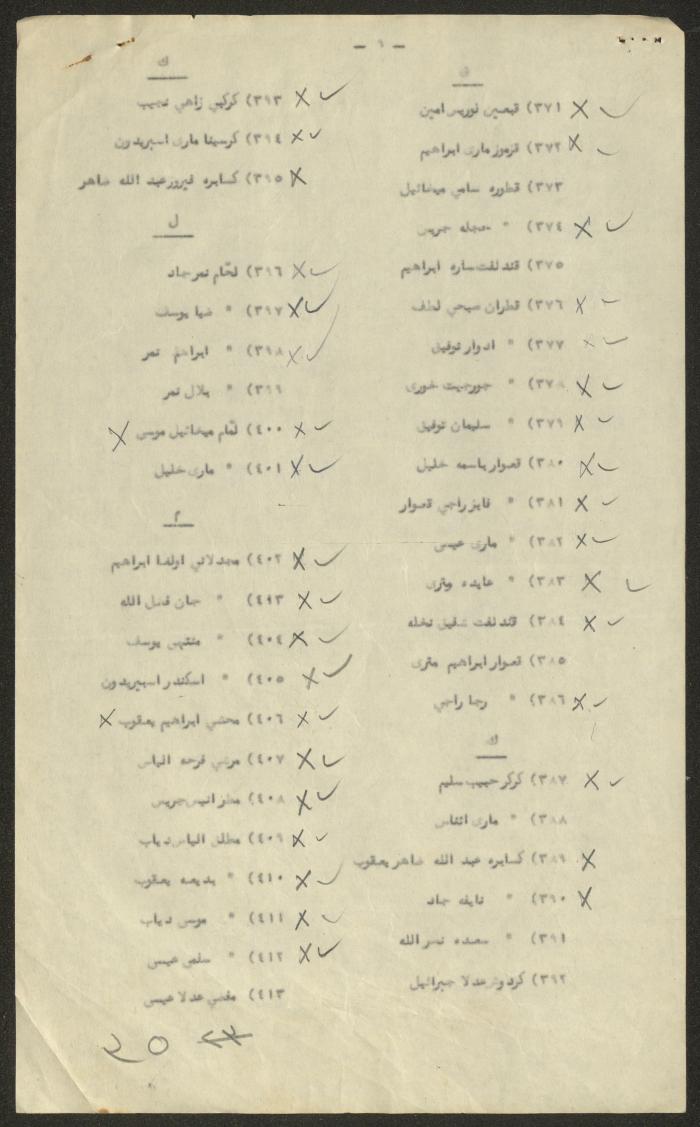 - ٩ -
ق
٣٧١) قبعين نوريس امين
٣٧٢) قرموز ماري ابراهيم
٣٧٣) قطوره سامي ميخائيل
٣٧٤) " نجله جريس
٣٧٥) قندلفت ساره ابراهيم
٣٧٦) قطران صبحي لطف
٣٧٧) " ادوار توفيق
٣٧٨) " جورجيت خوري
٣٧٩) " سليمان توفيق
٣٨٠) قعوار باسمه خليل
٣٨١) " فايز راجي قعوار
٣٨٢) " ماري عيسى
٣٨٣) " عايده متري
٣٨٤) قندلفت شفيق نخله
٣٨٥) قعوار ابراهيم متري
٣٨٦) " رجا راجي
ك
٣٨٧) كركر حبيب سليم
٣٨٨) " ماري
٣٨٩) كسابره عبد الله ضاهر يعقوب
٣٩٠) " نايفه جاد
٣٩١) " سعده نصر الله
٣٩٢) عدلا جبرائيل
ك
٣٩٣) كركبي زاهي نجيب
٣٩٤) كرسيتا ماري اسبريدون
٣٩٥) كسابره فيروز عبد الله ضاهر
ل
٣٩٦) لحّام نمر جاد
٣٩٧) " ضيا يوسف
٣٩٨) " ابراهيم نمر
٣٩٩) " بلال نمر
٤٠٠) لمّام ميخائيل موسى
٤٠١) " ماري خليل
م
٤٠٢) مجدلاني اولغا ابراهيم
٤٩٣) " جان فضل الله
٤٠٤) " منتهى يوسف
٤٠٥) " اسكندر اسبيريدون
٤٠٦) محشي ابراهيم يعقوب
٤٠٧) مرعي فرحه الياس
٤٠٨) مطر انيس جريس
٤٠٩) مطلق الياس دياب
٤١٠) " بديعه يعقوب
٤١١) " موسى دياب
٤١٢) " سلمى عيسى
٤١٣) عدلا عيسى